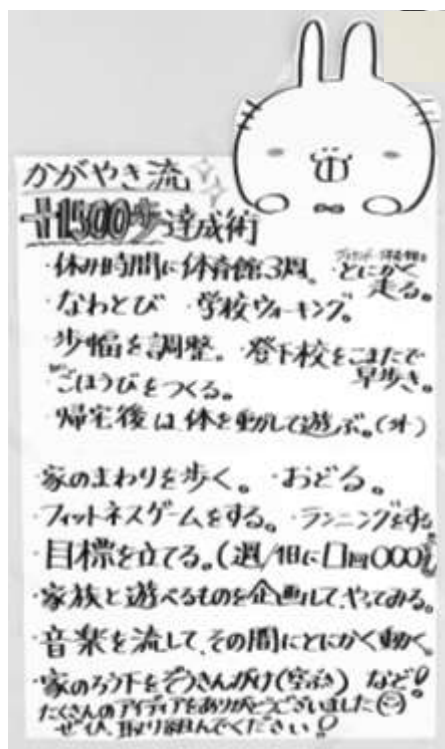 かがやき流
+1500歩達成術
・休み時間に体育館3周。・とにかく走る。
・なわとび ・学校ウォーキング。
・歩幅を調整。・登下校をこまたで早歩き。
・ごほうびをつくる。
・帰宅後は体を動かして遊ぶ。(外)
・家のまわりを歩く。・おどる。
・フィットネスゲームをする。・ランニングをする
・目標を立てる。(週/1日に□回〇〇〇)
・家族と遊べるものを企画して、やってみる。
・音楽を流して、その間にとにかく動く。
・家のろう下をぞうきんがけ(空ぶき) など!
たくさんのアイディアをありがとうございました
ぜひ、取り組んでください!